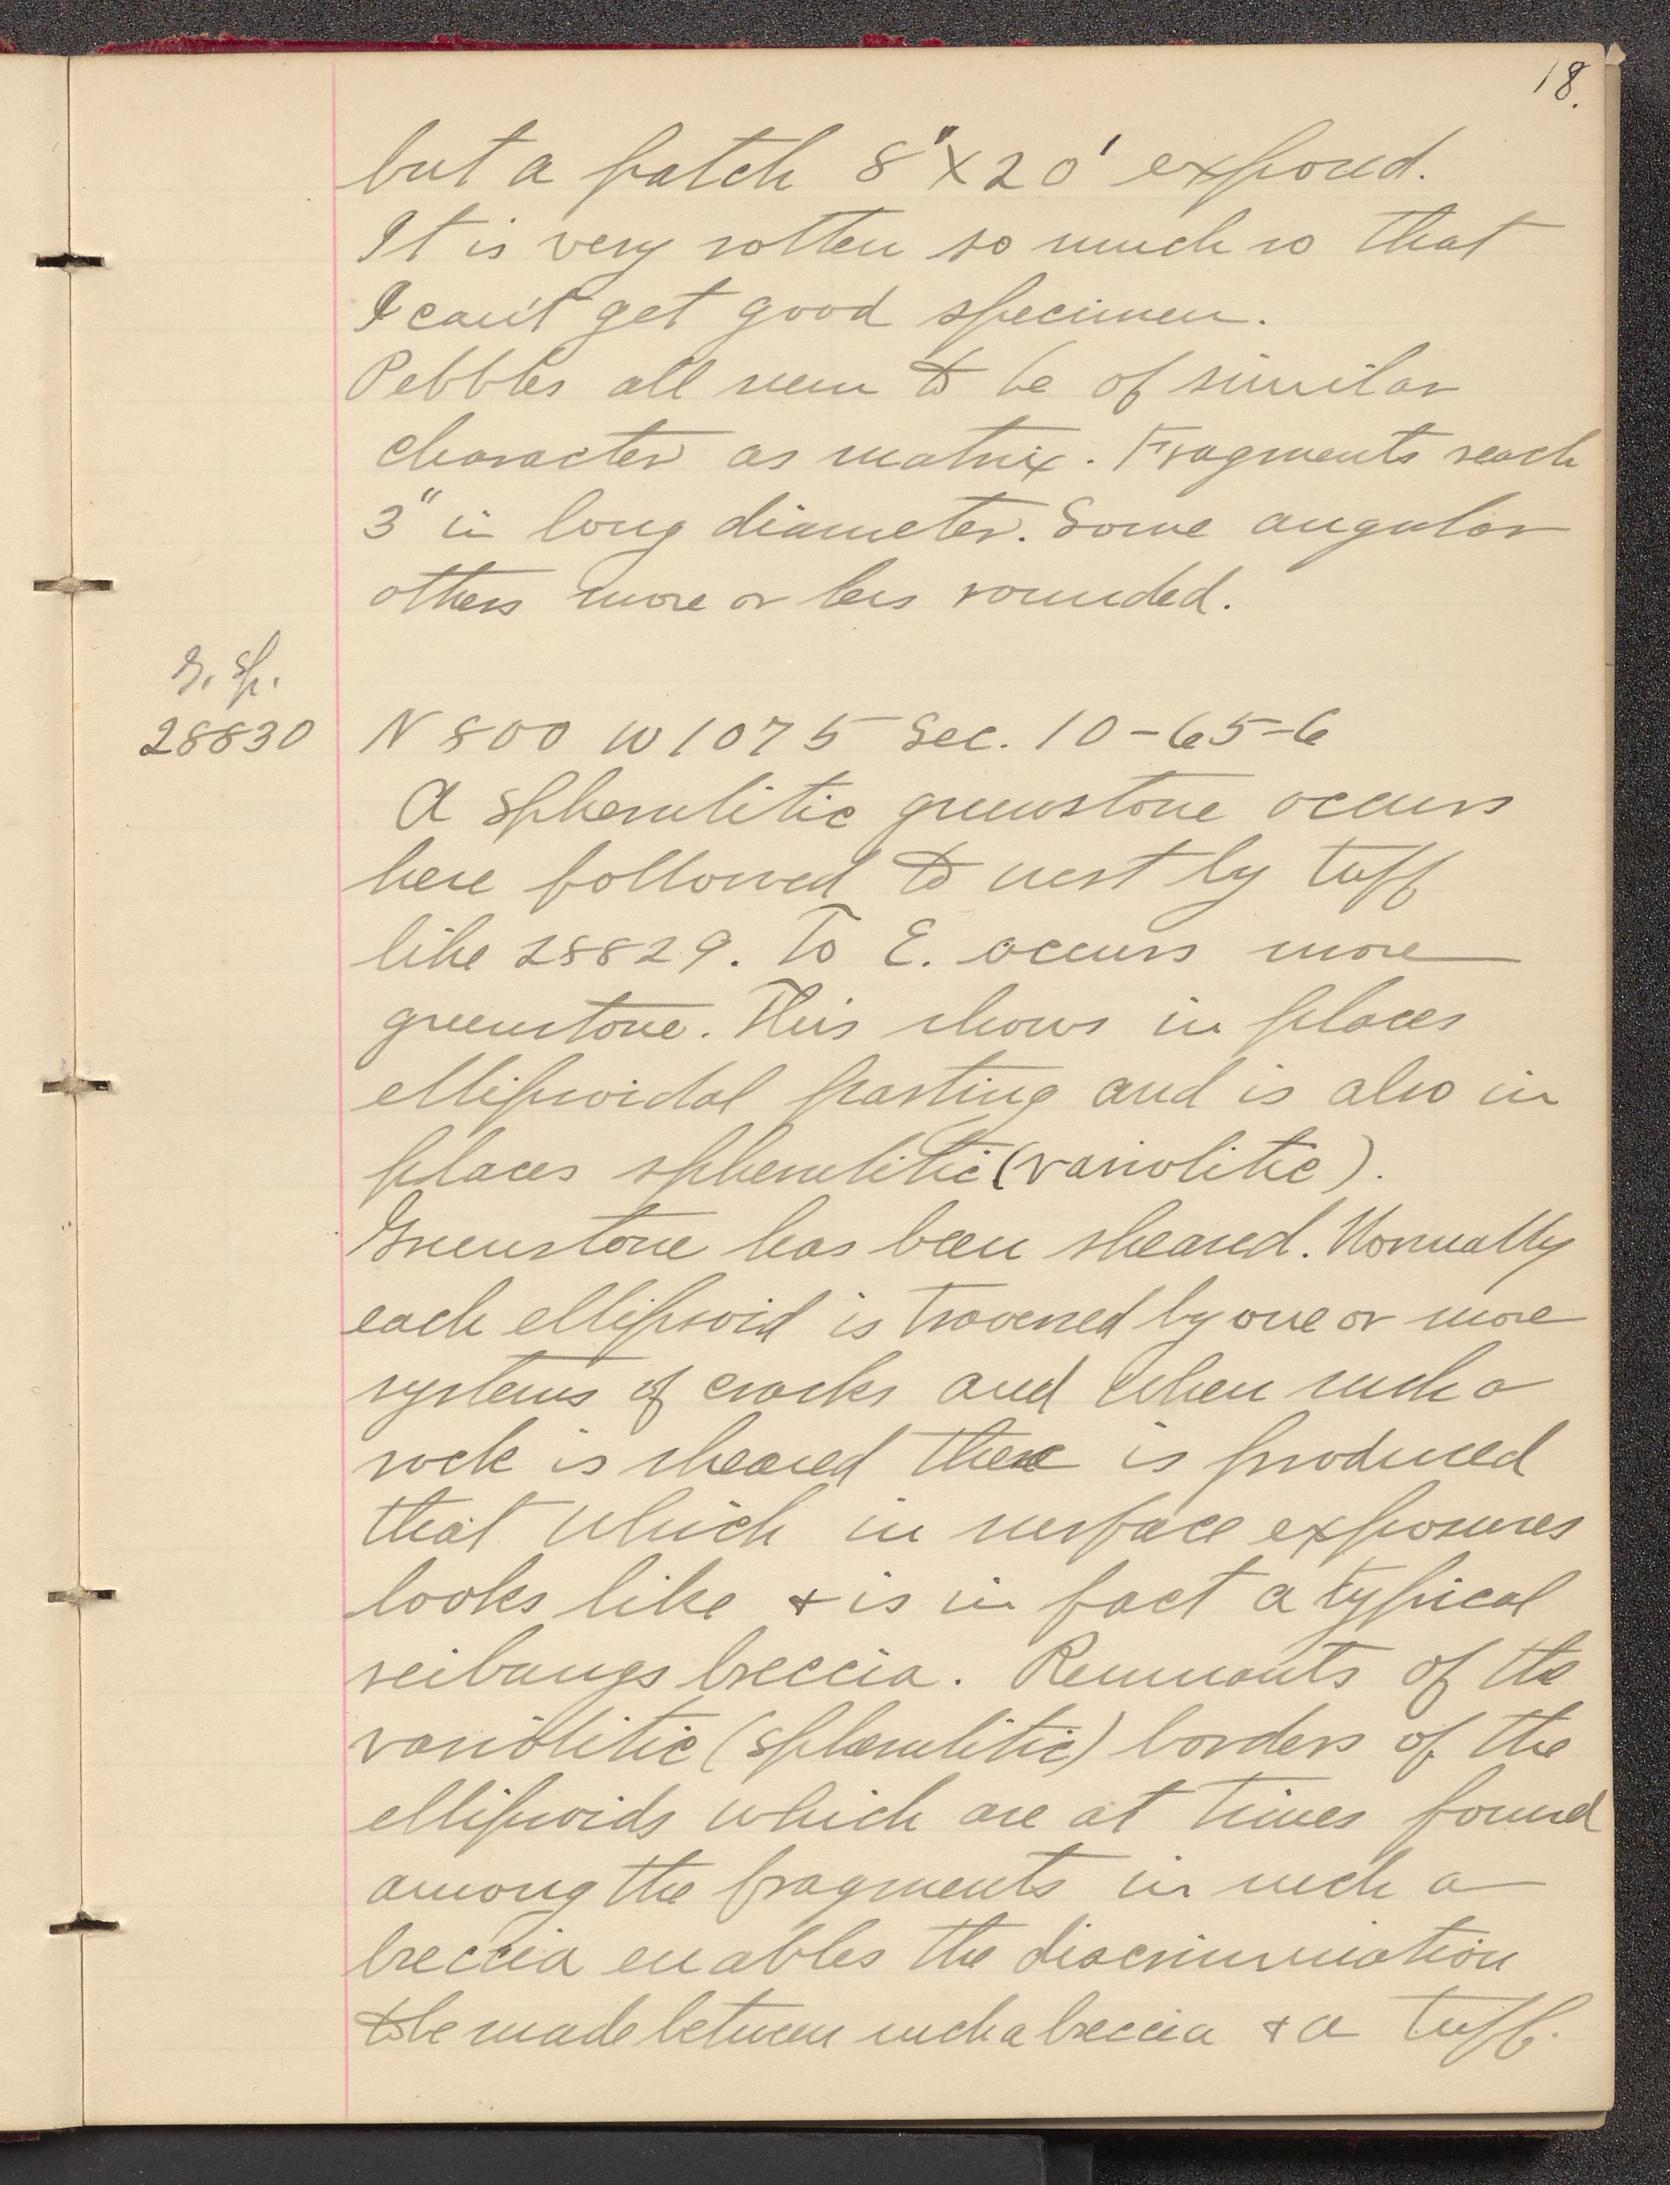 18.
but a patch 8" X 20' exposed.
It is very rotten so much so that
I can't get good specimen.
Pebbles all seem to be of similar
character as matrix. Fragments reach
3" in long diameter. Some angular
others more or less rounded.
G. Sp.
28830 N 800 W 1075 Sec. 10-65-6
A spherulitic greenstone occurs
here followed to west by tuff
like 28829. To E. occurs more
greenstone. This shows in places
ellipsoidal parting and is also in
places spherulitic (variolitic).
Greenstone has been sheared. Normally
each ellipsoid is traversed by one or more
systems of cracks and when such a
rock is sheared there is produced
that which in surface exposures
looks like & is in fact a typical
reibungs breccia. Remnants of the
variolitic (spherulitic) borders of the
ellipsoids which are at times found
among the fragments in such a
breccia enables the discrimination
to be made between such a breccia & a tuff.